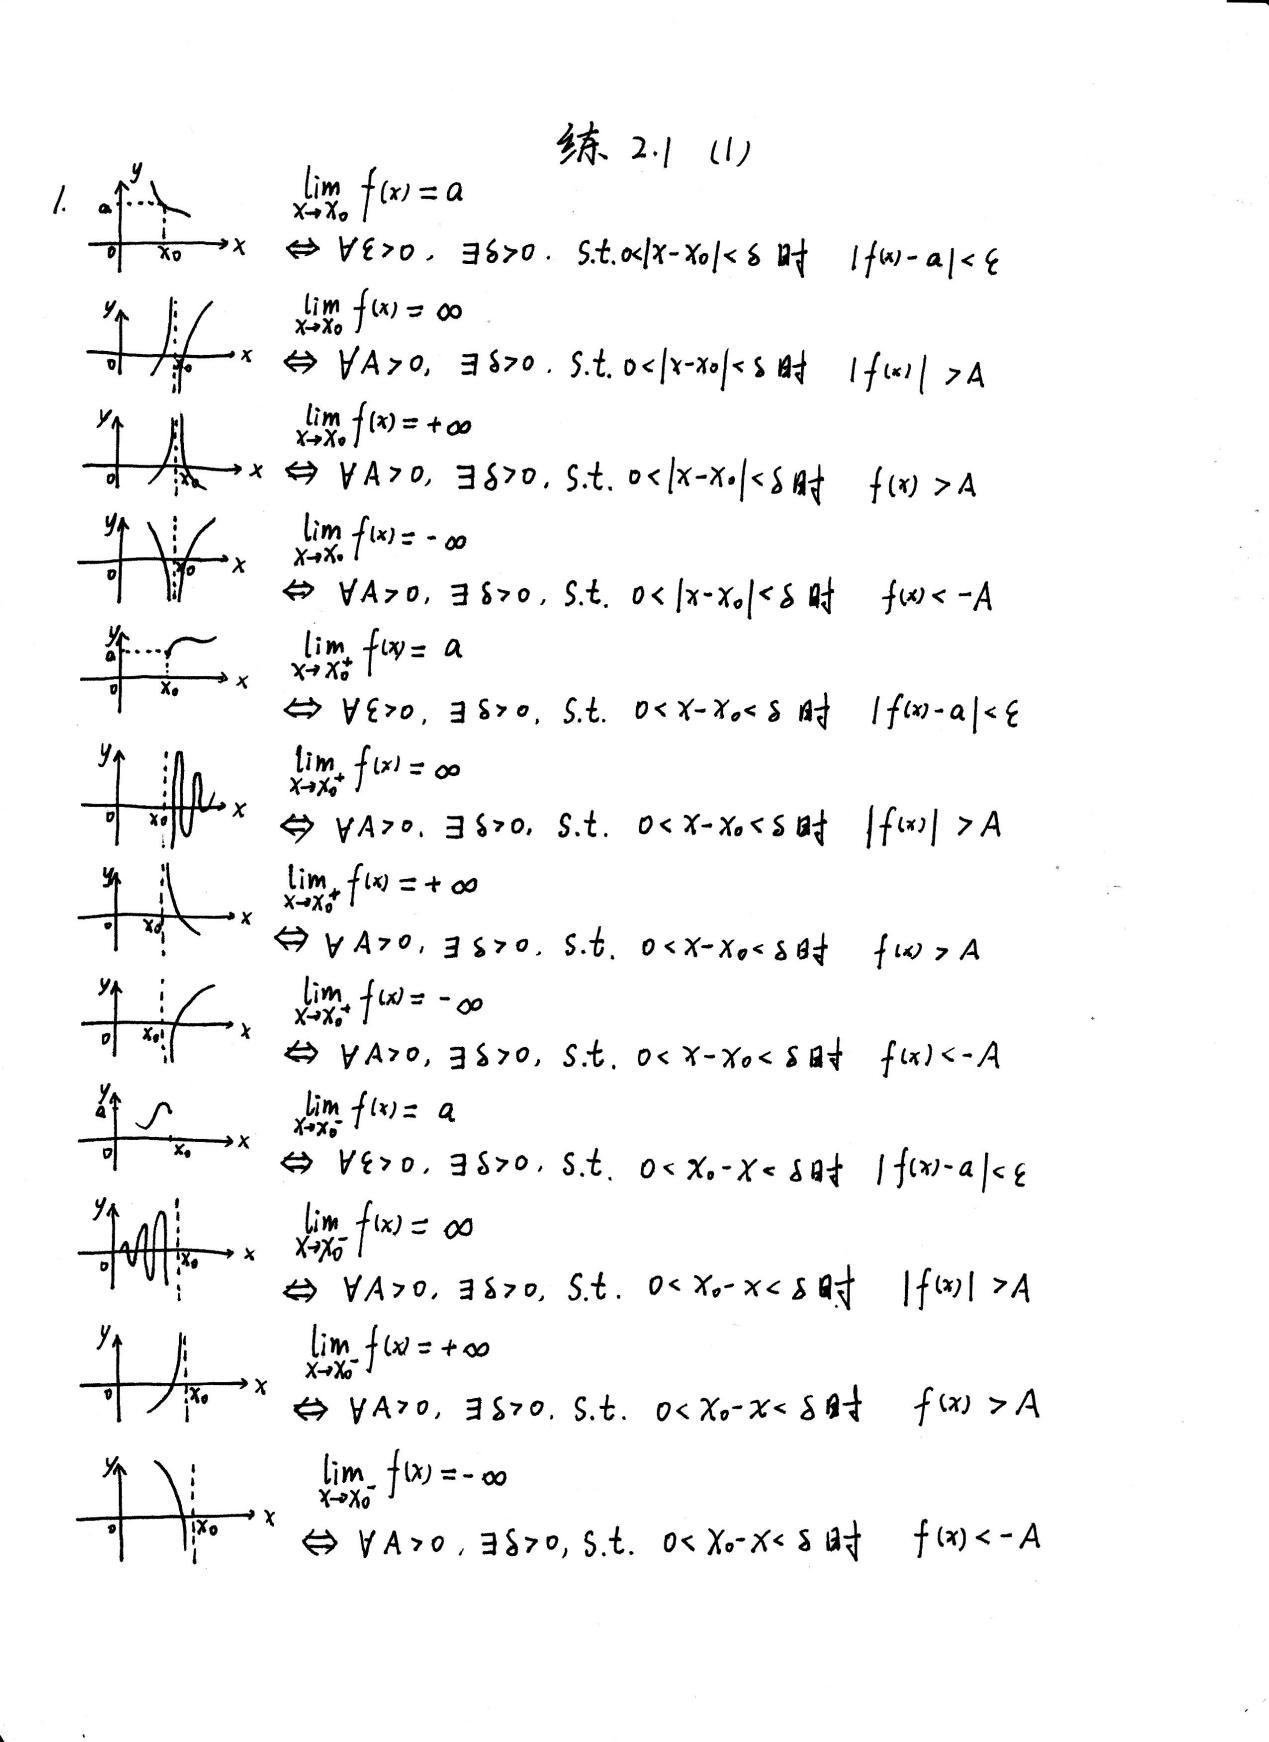 练 2.1 (1)
1.
y a 0 x₀ x
lim x→x₀ f(x) = a
⇔ ∀ε>0, ∃δ>0. s.t. 0<|x-x₀|<δ 时 |f(x)-a|<ε
y 0 x₀ x
lim x→x₀ f(x) = ∞
⇔ ∀A>0, ∃δ>0. s.t. 0<|x-x₀|<δ 时 |f(x)|>A
y 0 x₀ x
lim x→x₀ f(x) = +∞
⇔ ∀A>0, ∃δ>0, s.t. 0<|x-x₀|<δ 时 f(x)>A
y 0 x₀ x
lim x→x₀ f(x) = -∞
⇔ ∀A>0, ∃δ>0, s.t. 0<|x-x₀|<δ 时 f(x)<-A
y a 0 x₀ x
lim x→x₀⁺ f(x) = a
⇔ ∀ε>0, ∃δ>0, s.t. 0<x-x₀<δ 时 |f(x)-a|<ε
y 0 x₀ x
lim x→x₀⁺ f(x) = ∞
⇔ ∀A>0, ∃δ>0, s.t. 0<x-x₀<δ 时 |f(x)|>A
y 0 x₀ x
lim x→x₀⁺ f(x) = +∞
⇔ ∀A>0, ∃δ>0, s.t. 0<x-x₀<δ 时 f(x)>A
y 0 x₀ x
lim x→x₀⁺ f(x) = -∞
⇔ ∀A>0, ∃δ>0, s.t. 0<x-x₀<δ 时 f(x)<-A
y a 0 x₀ x
lim x→x₀⁻ f(x) = a
⇔ ∀ε>0, ∃δ>0, s.t. 0<x₀-x<δ 时 |f(x)-a|<ε
y 0 x₀ x
lim x→x₀⁻ f(x) = ∞
⇔ ∀A>0, ∃δ>0, s.t. 0<x₀-x<δ 时 |f(x)|>A
y 0 x₀ x
lim x→x₀⁻ f(x) = +∞
⇔ ∀A>0, ∃δ>0, s.t. 0<x₀-x<δ 时 f(x)>A
y 0 x₀ x
lim x→x₀⁻ f(x) = -∞
⇔ ∀A>0, ∃δ>0, s.t. 0<x₀-x<δ 时 f(x)<-A